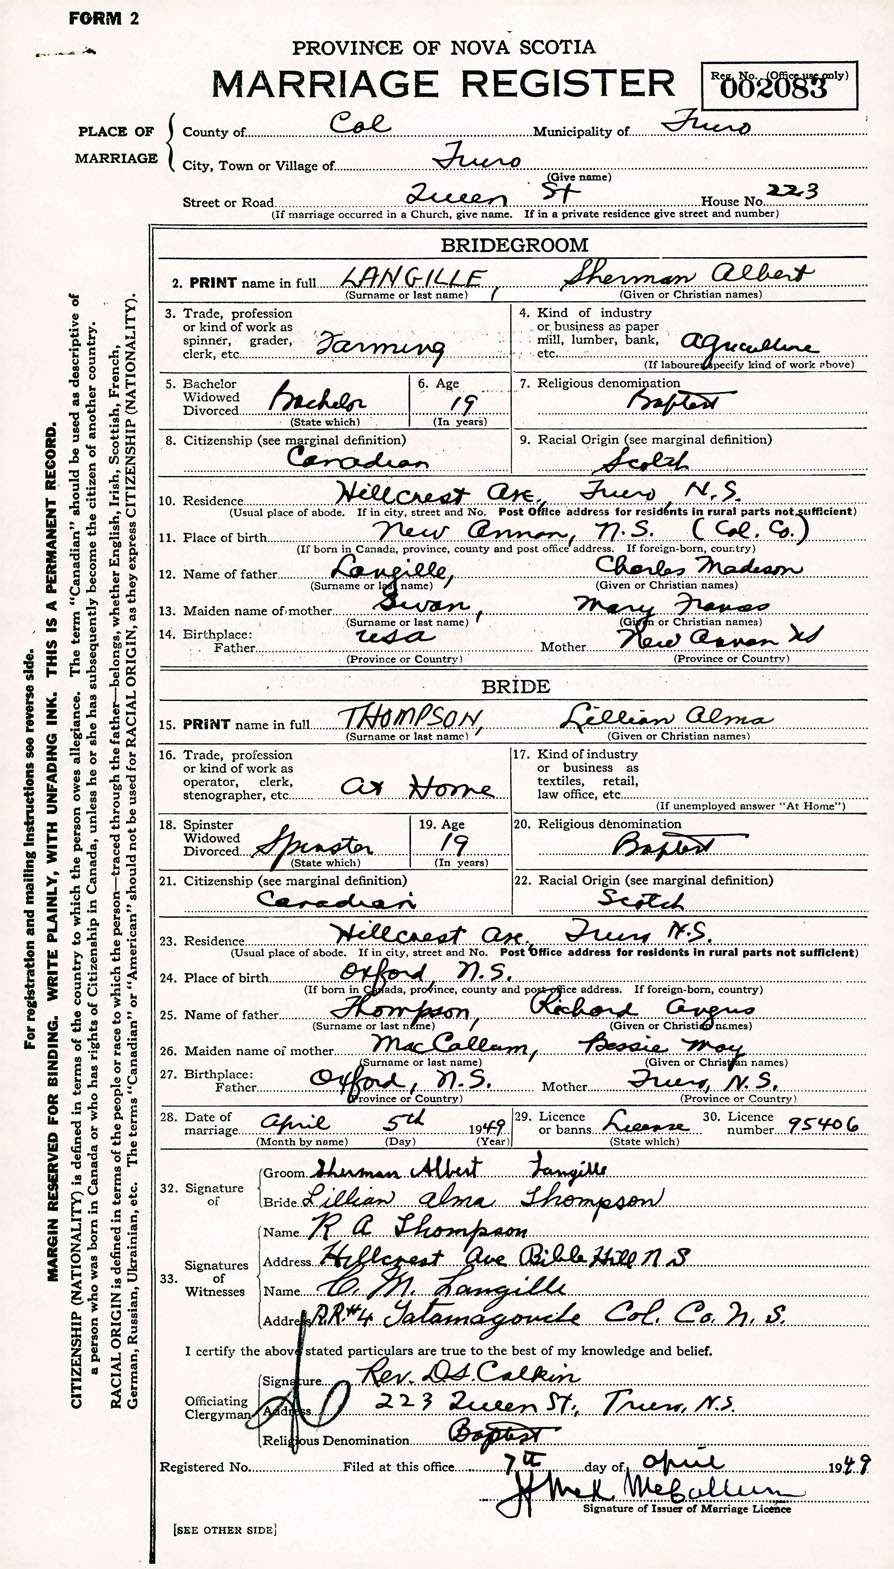 FORM 2
PROVINCE OF NOVA SCOTIA
MARRIAGE REGISTER
Reg. No. (Office use only)
002083
PLACE OF MARRIAGE
County of Col Municipality of Truro
City, Town or Village of Truro
(Give name)
Street or Road Queen St House No. 223
(If marriage occurred in a Church, give name. If in a private residence give street and number)
BRIDEGROOM
2. PRINT name in full LANGILLE, Sherman Albert
(Surname or last name) (Given or Christian names)
3. Trade, profession or kind of work as spinner, grader, clerk, etc. Farming
4. Kind of industry or business as paper mill, lumber, bank, etc. Agriculture
(If labourer specify kind of work above)
5. Bachelor Widowed Divorced Bachelor
(State which)
6. Age 19
(In years)
7. Religious denomination
Baptist
8. Citizenship (see marginal definition)
Canadian
9. Racial Origin (see marginal definition)
Scotch
10. Residence Hillcrest Ave, Truro, N.S.
(Usual place of abode. If in city, street and No. Post Office address for residents in rural parts not sufficient)
11. Place of birth New Annan, N.S. (Col. Co.)
(If born in Canada, province, county and post office address. If foreign-born, country)
12. Name of father Langille, Charles Madison
(Surname or last name) (Given or Christian names)
13. Maiden name of mother Swan, Mary Frances
(Surname or last name) (Given or Christian names)
14. Birthplace:
Father USA Mother New Annan NS
(Province or Country) (Province or Country)
BRIDE
15. PRINT name in full THOMPSON, Lillian Alma
(Surname or last name) (Given or Christian names)
16. Trade, profession or kind of work as operator, clerk, stenographer, etc. At Home
17. Kind of industry or business as textiles, retail, law office, etc.
(If unemployed answer "At Home")
18. Spinster Widowed Divorced Spinster
(State which)
19. Age 19
(In years)
20. Religious denomination
Baptist
21. Citizenship (see marginal definition)
Canadian
22. Racial Origin (see marginal definition)
Scotch
23. Residence Hillcrest Ave, Truro N.S.
(Usual place of abode. If in city, street and No. Post Office address for residents in rural parts not sufficient)
24. Place of birth Oxford, N.S.
(If born in Canada, province, county and post office address. If foreign-born, country)
25. Name of father Thompson, Richard Angus
(Surname or last name) (Given or Christian names)
26. Maiden name of mother MacCallum, Bessie May
(Surname or last name) (Given or Christian names)
27. Birthplace:
Father Oxford, N.S. Mother Truro, N.S.
(Province or Country) (Province or Country)
28. Date of marriage April 5th 1949
(Month by name) (Day) (Year)
29. Licence or banns License
(State which)
30. Licence number 95406
32. Signature of
Groom Sherman Albert Langille
Bride Lillian Alma Thompson
33. Signatures of Witnesses
Name R A Thompson
Address Hillcrest Ave Bible Hill N S
Name C. M. Langille
Address R.R.#4 Tatamagouche Col. Co. N. S.
I certify the above stated particulars are true to the best of my knowledge and belief.
Officiating Clergyman
Signature Rev. D.S. Calkin
Address 223 Queen St., Truro, N.S.
Religious Denomination Baptist
Registered No. Filed at this office 7th day of April 1949
McCallum
Signature of Issuer of Marriage Licence
[SEE OTHER SIDE]
For registration and mailing instructions see reverse side.
MARGIN RESERVED FOR BINDING. WRITE PLAINLY, WITH UNFADING INK. THIS IS A PERMANENT RECORD.
CITIZENSHIP (NATIONALITY) is defined in terms of the country to which the person owes allegiance. The term "Canadian" should be used as descriptive of
a person who was born in Canada or who has rights of Citizenship in Canada, unless he or she has subsequently become the citizen of another country.
RACIAL ORIGIN is defined in terms of the people or race to which the person—traced through the father—belongs, whether English, Irish, Scottish, French,
German, Russian, Ukrainian, etc. The terms "Canadian" or "American" should not be used for RACIAL ORIGIN, as they express CITIZENSHIP (NATIONALITY).